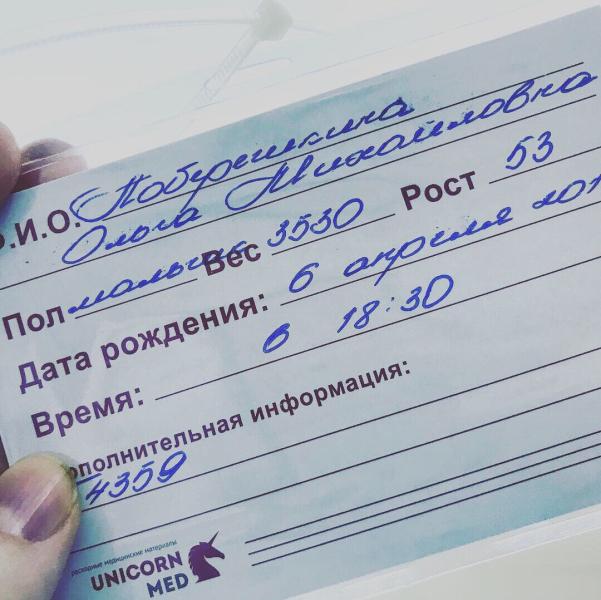 Ф.И.О. Поберешкина
Ольга Михайловна
Пол мальчик Вес 3530 Рост 53
Дата рождения: 6 апреля 201
Время: в 18:30
Дополнительная информация:
4359
расходные медицинские материалы
UNICORN
MED